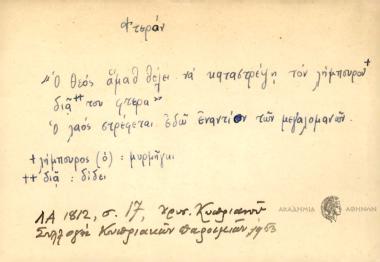 Φτερόν
"Ὁ θεός ἅμαθ θέλει νά καταστρέψῃ τόν λήμπουρον+
διᾷ++ του φτερά"
Ὁ λαός στρέφεται ἐδῶ ἐναντίον τῶν μεγαλομανῶν.
+ λήμπουρος (ὁ) : μυρμήγκι
++ διᾷ : δίδει
ΛΑ 1812, σ. 17, Χρυσ. Κυπριανοῦ
Συλλογή Κυπριακῶν Παροιμιῶν, 1953
ΑΚΑΔΗΜΙΑ ΑΘΗΝΩΝ